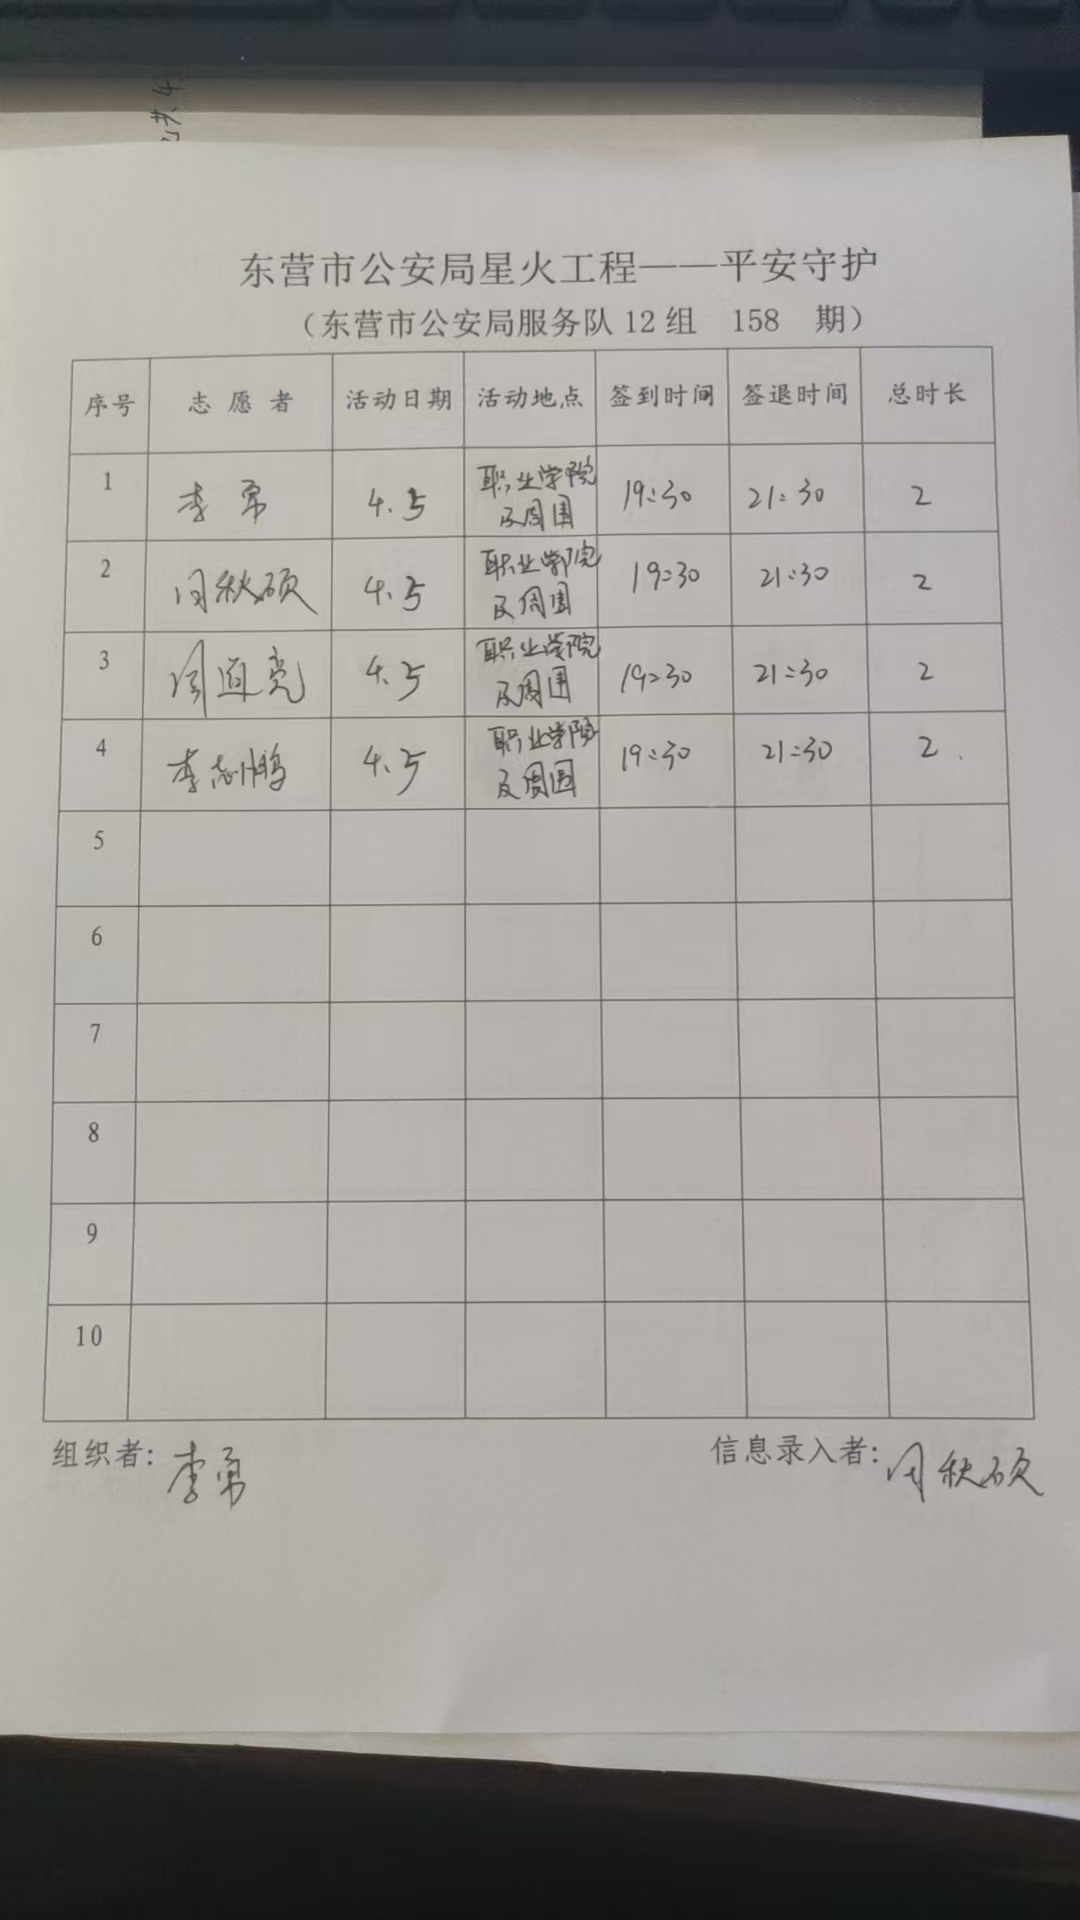 东营市公安局星火工程——平安守护
（东营市公安局服务队 12 组 158 期）
序号 志愿者 活动日期 活动地点 签到时间 签退时间 总时长
1 李勇 4.5 职业学院及周围 19:30 21:30 2
2 闫秋硕 4.5 职业学院及周围 19:30 21:30 2
3 闫道亮 4.5 职业学院及周围 19:30 21:30 2
4 李志鹏 4.5 职业学院及周围 19:30 21:30 2
5
6
7
8
9
10
组织者：李勇 信息录入者：闫秋硕